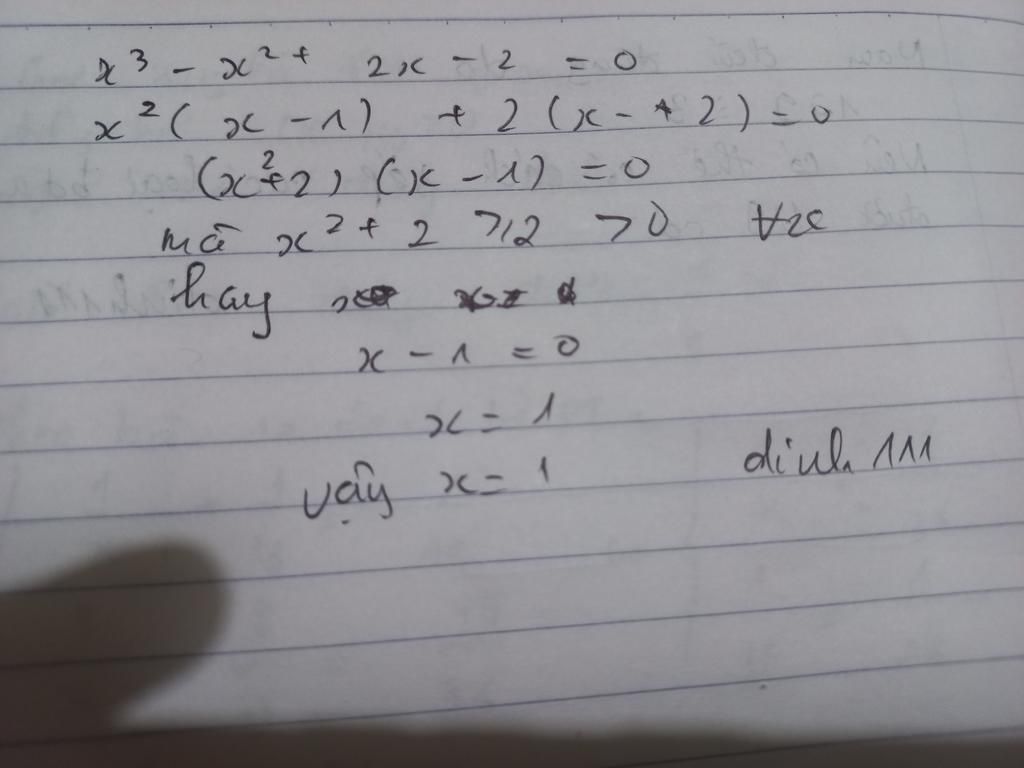 x³ - x² + 2x - 2 = 0
x² ( x - 1 ) + 2 ( x - + 2 ) = 0
( x² + 2 ) ( x - 1 ) = 0
mà x² + 2 ⩾ 2 > 0 ∀x
hay
x - 1 = 0
x = 1
vậy x = 1 dinh 111